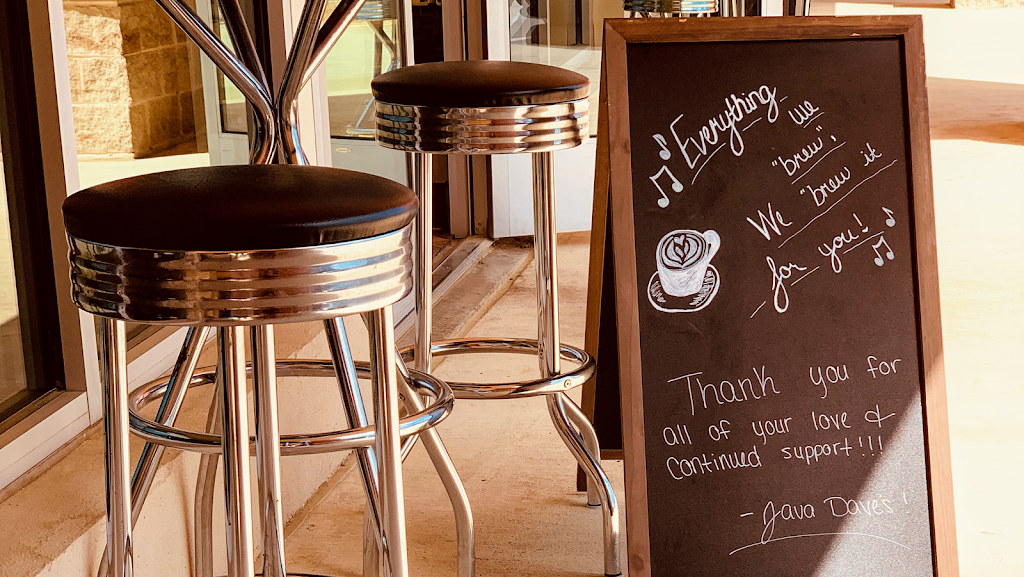 Everything
we
"brew",
We "brew it
for you!
Thank you for
all of your love &
continued support!!!
- Java Dave's!